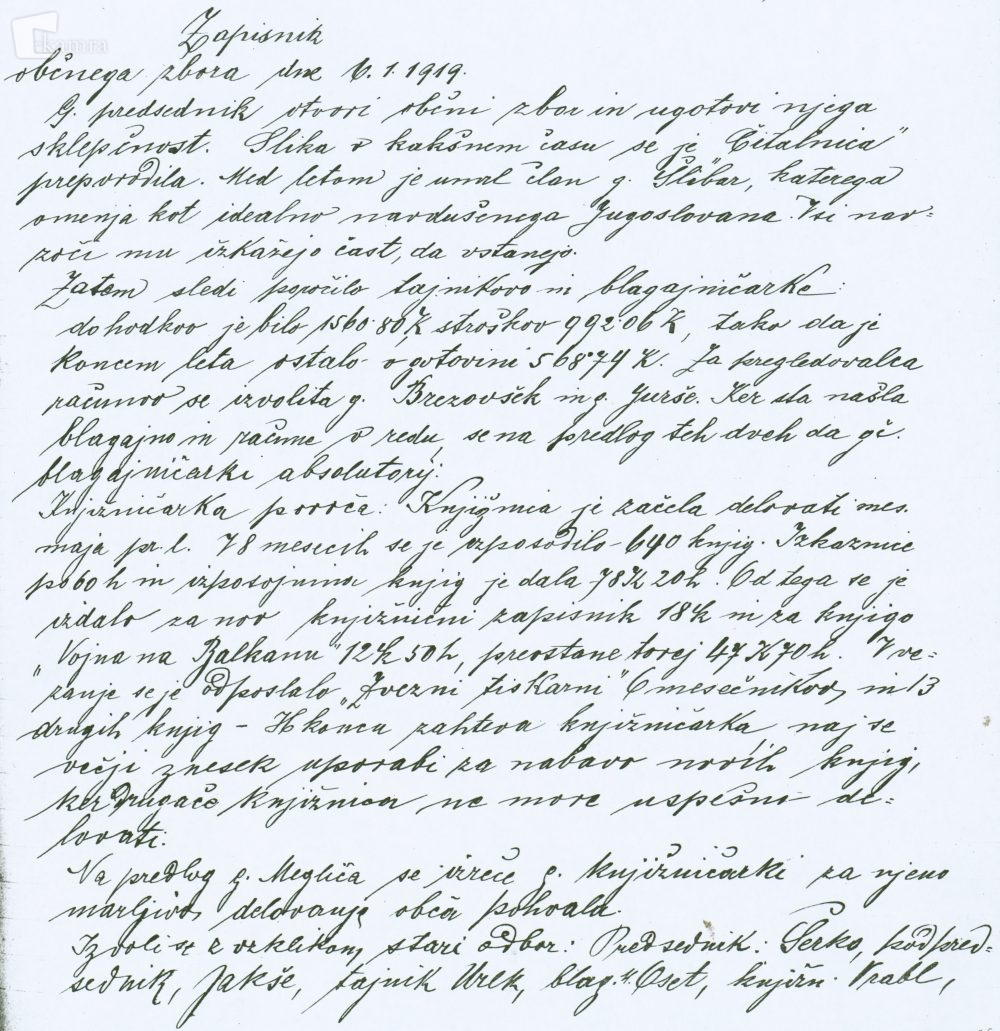 kamra
Zapisnik
občnega zbora dne 6.1.1919.
G. predsednik otvori občni zbor in ugotovi njega
sklepčnost. Slika v kakšnem času se je "Čitalnica"
preporodila. Med letom je umrl član g. Šlibar, katerega
omenja kot idealno navdušenega Jugoslovana. Vsi nav-
zoči mu izkažejo čast, da vstanejo.
Zatem sledi poročilo tajnikovo in blagajničarke:
dohodkov je bilo 1560.80 K, stroškov 992.06 K, tako da je
koncem leta ostalo v gotovini 568.74 K. Za pregledovalca
računov se izvolita g. Brezovšek in g. Jurše. Ker sta našla
blagajno in račune v redu, se na predlog teh dveh da gč.
blagajničarki absolutorij.
Knjižničarka poroča: Knjižnica je začela delovati mes.
maja pr. l. V 8 mesecih se je izposodilo 640 knjig. Izkaznice
po 60 h in izposojnina knjig je dala 78 K 20 h. Od tega se je
izdalo za nov knjižnični zapisnik 18 K in za knjigo
"Vojna na Balkanu" 12 K 50 h, preostane torej 47 K 70 h. V ve-
zanje se je odposlalo "Zvezni tiskarni" 6 mesečnikov, in 13
drugih knjig – H koncu zahteva knjižničarka, naj se
večji znesek uporabi za nabavo novih knjig,
ker drugače knjižnica ne more uspešno de-
lovati.
Na predlog g. Megliča se izreče g. knjižničarki za njeno
marljivo delovanje obča pohvala.
Izvoli se z vzklikom stari odbor: Predsednik: Serko, podpred-
sednik, Jakše, tajnik Urek, blag. Oset, knjižn. Vrabl,